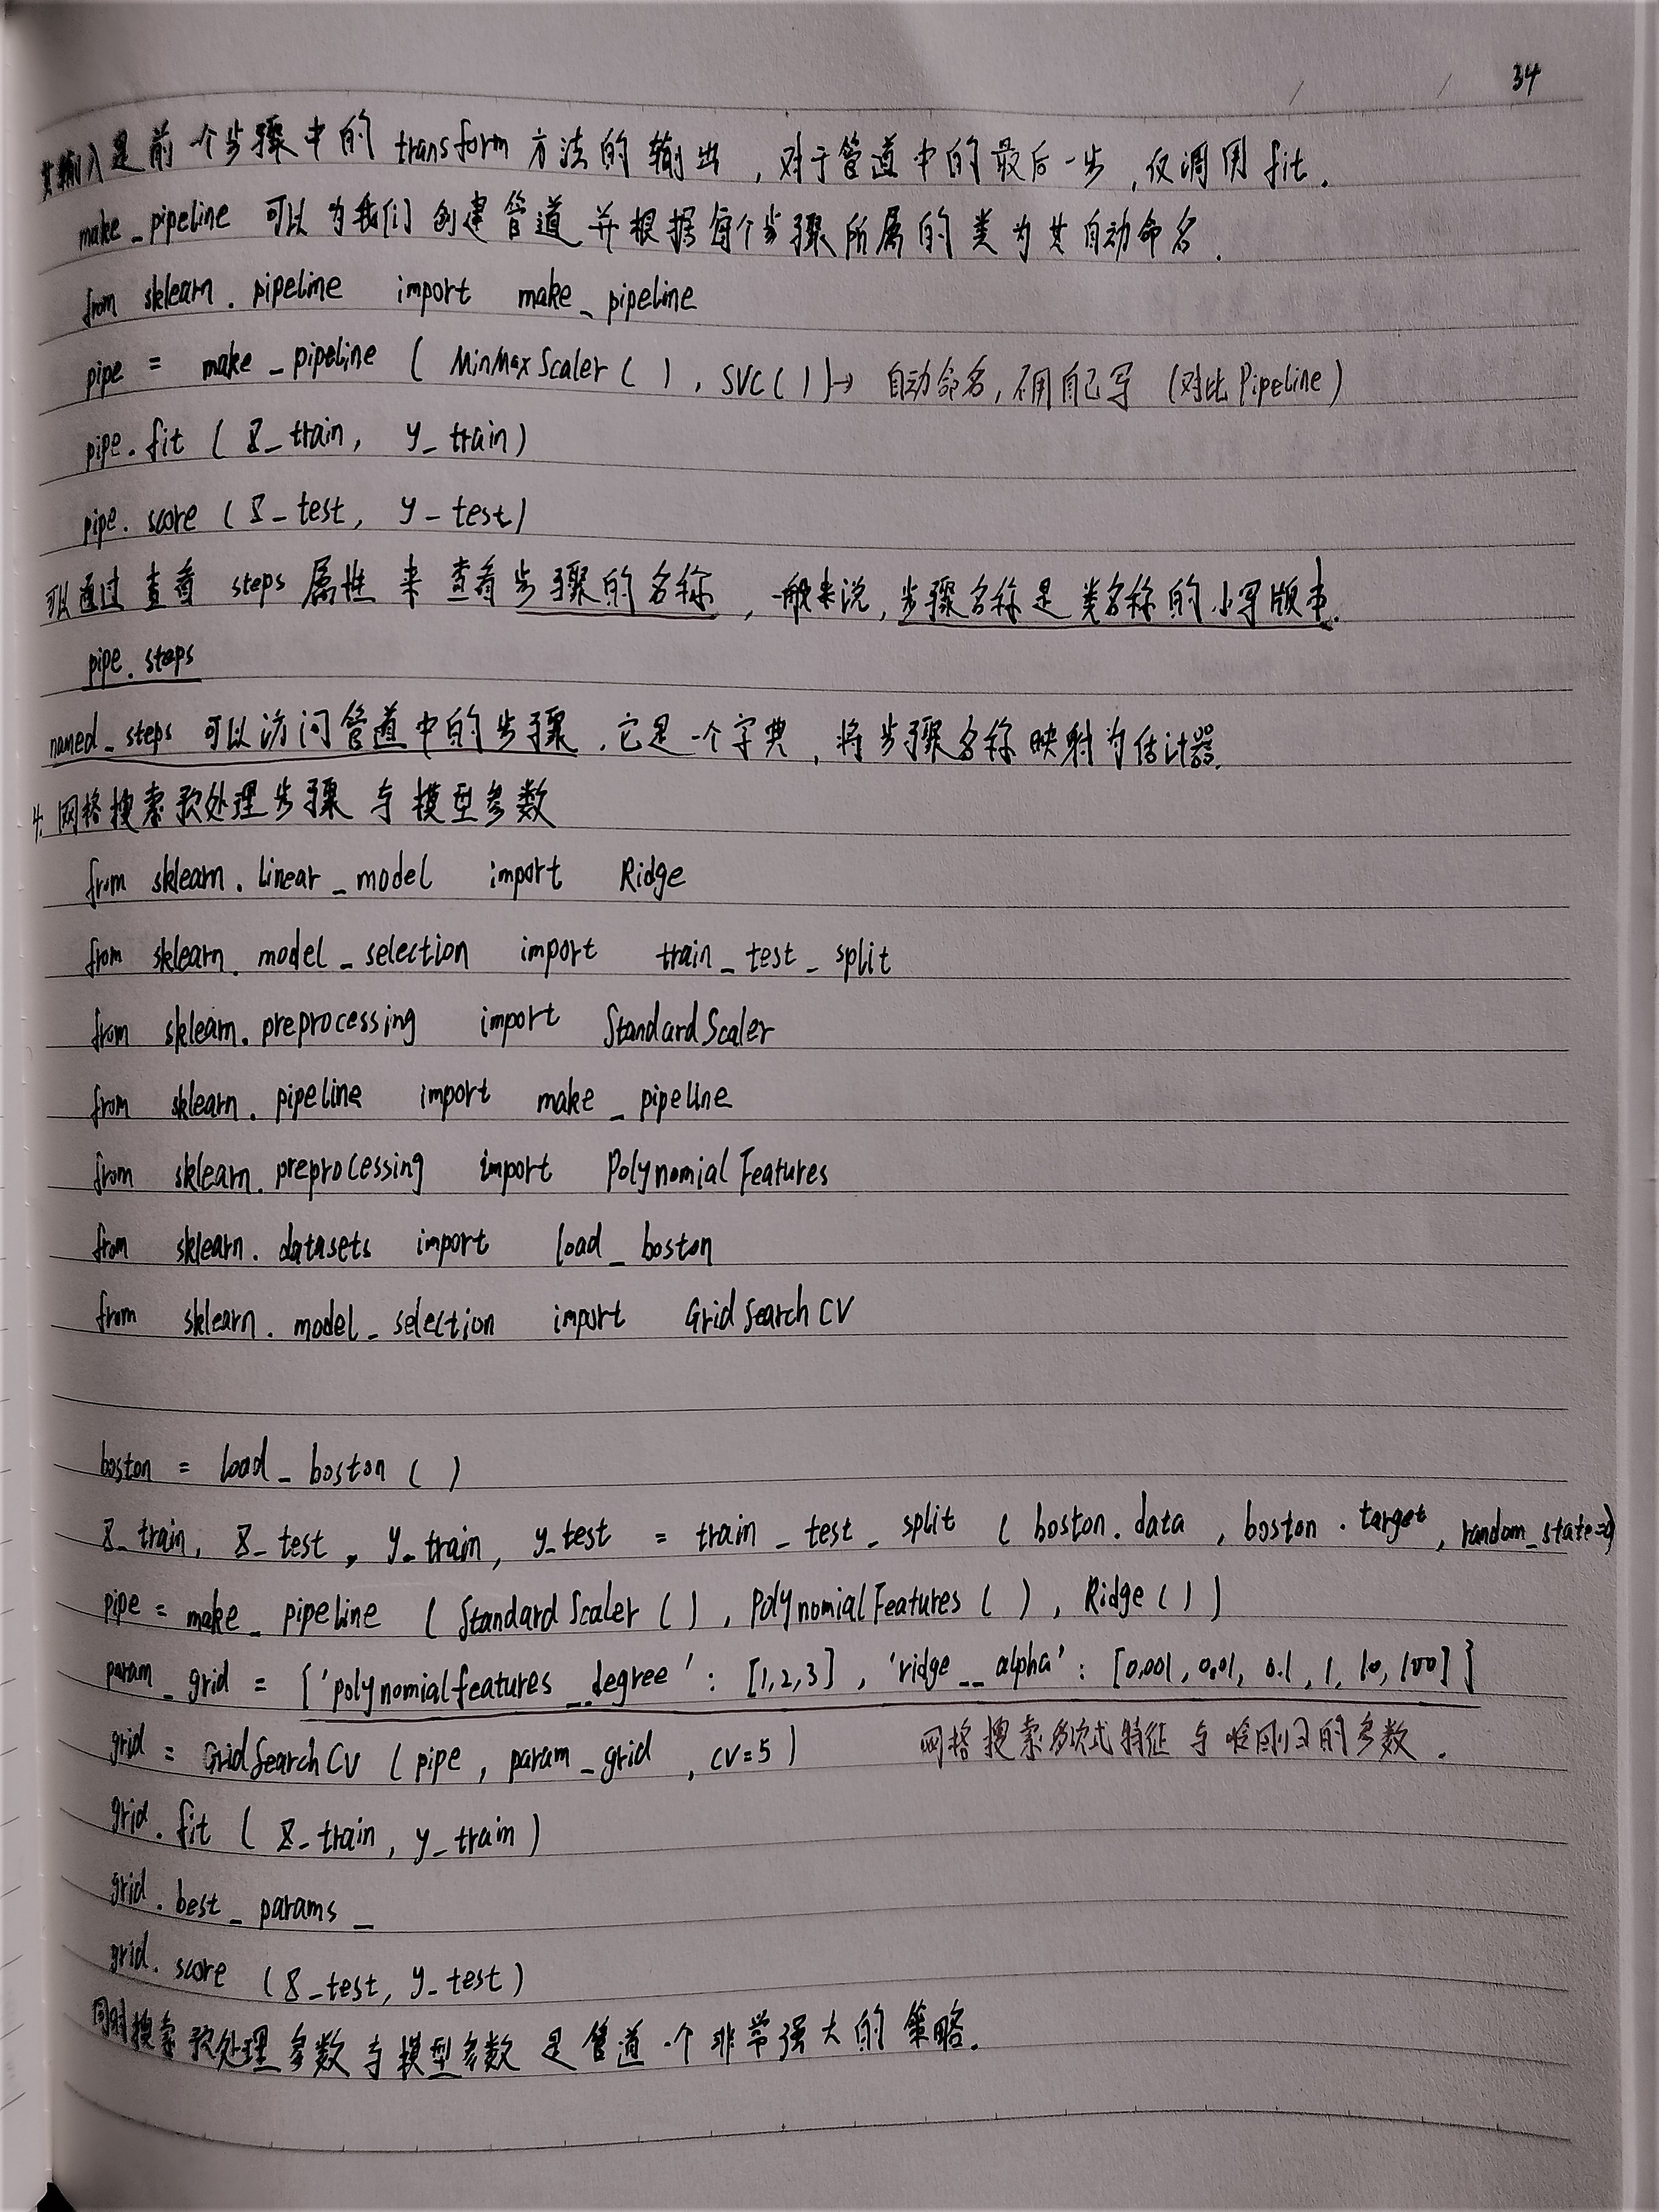 34
其输入是前一个步骤中的 transform 方法的输出，对于管道中的最后一步，仅调用 fit.
make_pipeline 可以为我们创建管道并根据每个步骤所属的类为其自动命名.
from sklearn.pipeline import make_pipeline
pipe = make_pipeline ( MinMaxScaler ( ) , SVC ( ) ) → 自动命名, 不用自己写 (对比 Pipeline )
pipe.fit ( X_train, y_train )
pipe.score ( X_test, y_test )
可以通过查看 steps 属性来查看步骤的名称，一般来说, 步骤名称是类名称的小写版本.
pipe.steps
named_steps 可以访问管道中的步骤. 它是一个字典，将步骤名称映射为估计器.
4. 网格搜索预处理步骤与模型参数
from sklearn.linear_model import Ridge
from sklearn.model_selection import train_test_split
from sklearn.preprocessing import StandardScaler
from sklearn.pipeline import make_pipeline
from sklearn.preprocessing import PolynomialFeatures
from sklearn.datasets import load_boston
from sklearn.model_selection import GridSearchCV
boston = load_boston ( )
X_train, X_test, y_train, y_test = train_test_split ( boston.data , boston.target , random_state=0)
pipe = make_pipeline ( StandardScaler ( ) , PolynomialFeatures ( ) , Ridge ( ) )
param_grid = {'polynomialfeatures__degree' : [1,2,3] , 'ridge__alpha' : [0.001, 0.01, 0.1, 1, 10, 100] }
grid = GridSearchCV ( pipe , param_grid , cv=5 ) 网格搜索多项式特征与岭回归的参数.
grid.fit ( X_train, y_train )
grid.best_params_
grid.score ( X_test, y_test )
同时搜索预处理参数与模型参数是管道一个非常强大的策略.